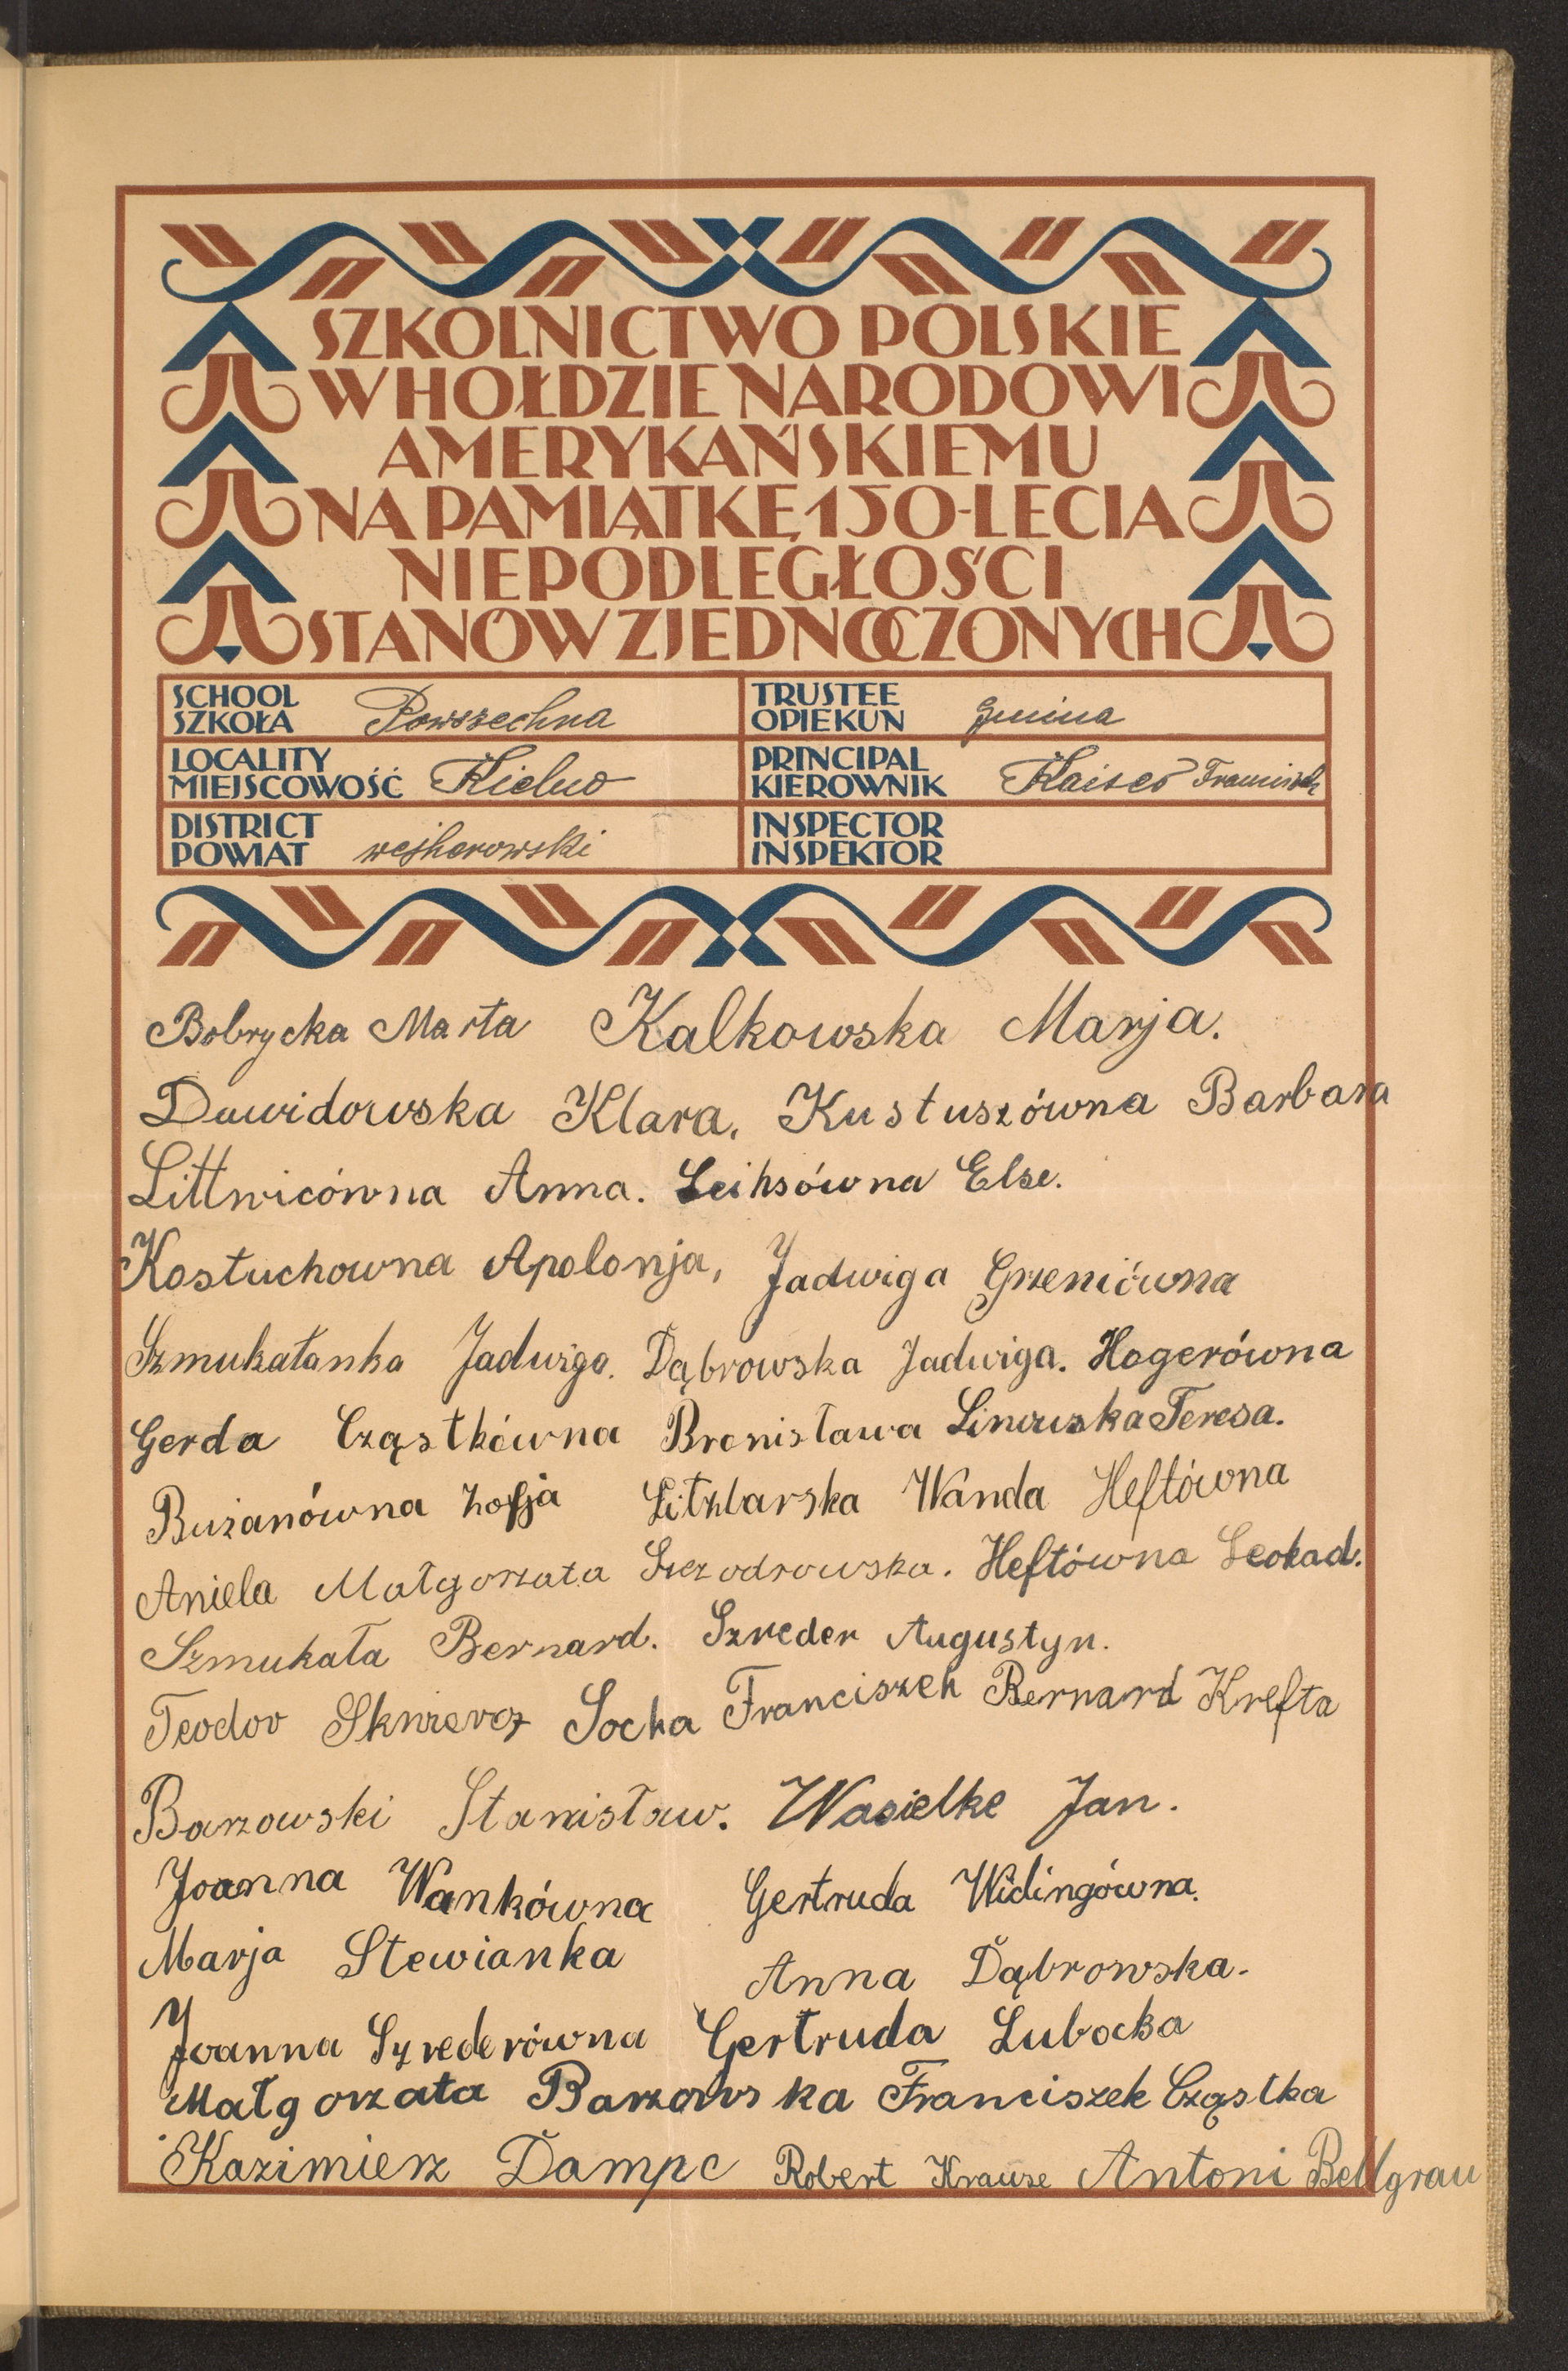 SZKOLNICTWO POLSKIE
W HOŁDZIE NARODOWI
AMERYKAŃSKIEMU
NA PAMIĄTKĘ 150-LECIA
NIEPODLEGŁOŚCI
STANÓW ZJEDNOCZONYCH
SCHOOL
SZKOŁA Powszechna
TRUSTEE
OPIEKUN Gmina
LOCALITY
MIEJSCOWOŚĆ Kielno
PRINCIPAL
KIEROWNIK Kaiser Franciszek
DISTRICT
POWIAT wejherowski
INSPECTOR
INSPEKTOR
Bobrycka Marta Kalkowska Marja.
Dawidowska Klara. Kustuszówna Barbara
Littwicówna Anna. Leihsówna Else.
Kostuchowna Apolonja, Jadwiga Grzeniówna
Szmukałanka Jadwiga. Dąbrowska Jadwiga. Hogerówna
Gerda Cząstkówna Bronisława Teresa.
Bużanówna Zofja Litzbarska Wanda Heftówna
Aniela Małgorzata Szczodrowska. Heftówna Leokad.
Szmukała Bernard. Szreder Augustyn.
Teodor Socha Franciszek Bernard Krefta
Barzowski Stanisław. Wasielke Jan.
Joanna Wankówna Gertruda Widingówna.
Marja Stewianka Anna Dąbrowska.
Joanna Szrederówna Gertruda Lubocka
Małgorzata Barzowska Franciszek Cząstka
Kazimierz Dampc Robert Krauze Antoni Bellgrau